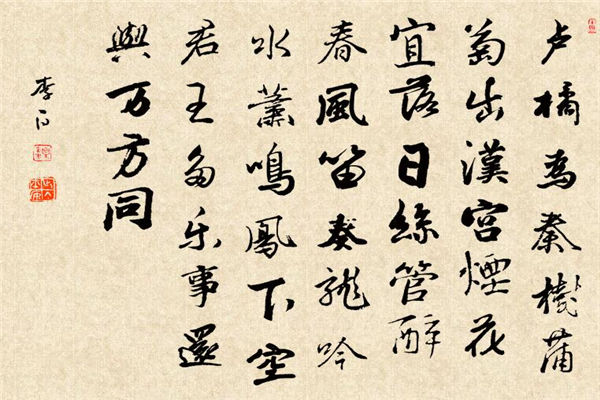 卢橘為秦樹蒲
萄出漢宮煙花
宜落日絲管酔
春風笛奏龍吟
水簫鳴鳳下空
君王多乐事還
與万方同
李白